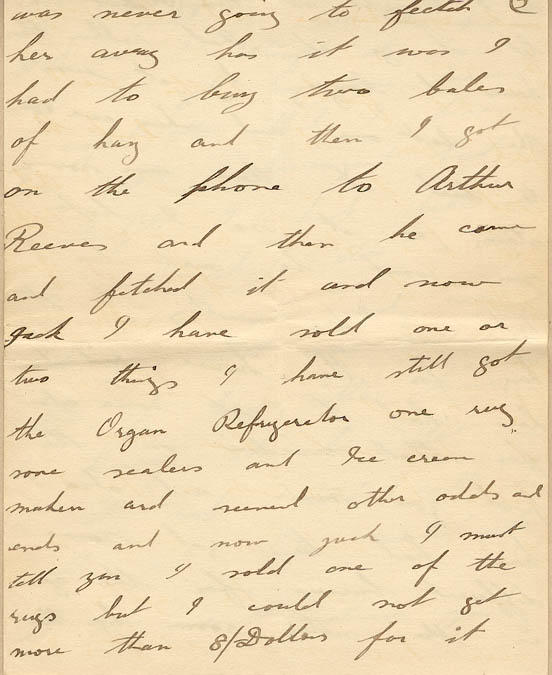 was never going to fetch
her away has it was I
had to buy two bales
of hay and then I got
on the phone to Arthur
Reeves and then he came
and fetched it and now
Jack I have sold one or
two things I have still got
the Organ Refrigerator one rug
some sealers and Ice cream
maker and several other odds and
ends and now Jack I must
tell you I sold one of the
rugs but I could not get
more than 8/Dollars for it